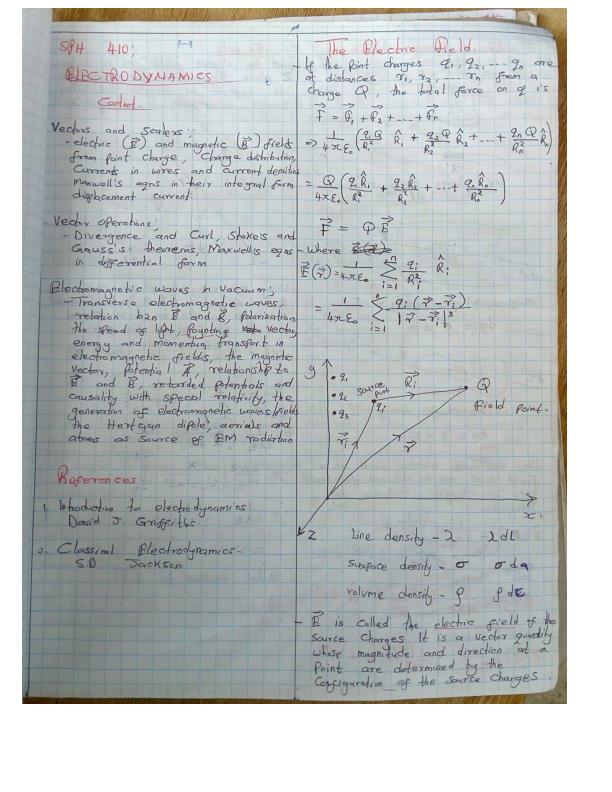 SPH 410;
ELECTRODYNAMICS
Content.
Vectors and Scalers:
- electric (E⃗) and magnetic (B⃗) fields
from point charge, Charge distribution,
Currents in wires and Current densities
Maxwell's eqns in their integral form
displacement current
Vector operations:
- Divergence and Curl, Stoke's and
Gauss's theorems, Maxwell's eqns
in differential form
Electromagnetic waves in vacuum;
- Transverse electromagnetic waves,
relation b2n E⃗ and B⃗, polarization,
the speed of light, poynting vector,
energy and momentum transport in
electromagnetic fields, the magnetic
vector, potential A⃗, relationship to
E⃗ and B⃗, retarded potentials and
causality with special relativity, the
generation of electromagnetic waves/fields
the Hertzian dipole, aerials and
atoms as source of EM radiation
References
1. Introduction to electrodynamics
David J. Griffiths.
2. Classical Electrodynamics -
S.D Jackson
The Electric Field.
- If the Point charges q₁, q₂, ... qn are
at distances r₁, r₂, ... rn from a
charge Q, the total force on q is.
F⃗ = F⃗₁ + F⃗₂ + ... + F⃗n
⇒ 1/4πε₀ (q₁Q/R₁² R̂₁ + q₂Q/R₂² R̂₂ + ... + qnQ/Rn² R̂n)
= Q/4πε₀ (q₁R̂₁/R₁² + q₂R̂₂/R₂² + ... + qnR̂n/Rn²)
F⃗ = QE⃗
- Where
E⃗(r⃗) = 1/4πε₀ Σ i=1 n qi/Ri² R̂i
= 1/4πε₀ Σ i=1 n qi(r⃗-r⃗i)/|r⃗-r⃗i|³
y
q₁
q₂
q₃
Source point
qi
R⃗i
Q
field point.
r⃗i
r⃗
x
Z
Line density - λ λdL
Surface density - σ σda
volume density - ρ ρdτ
- E⃗ is called the electric field of the
Source Charges. It is a vector quantity
whose magnitude and direction at a
Point are determined by the
Configuration of the Source Charges.